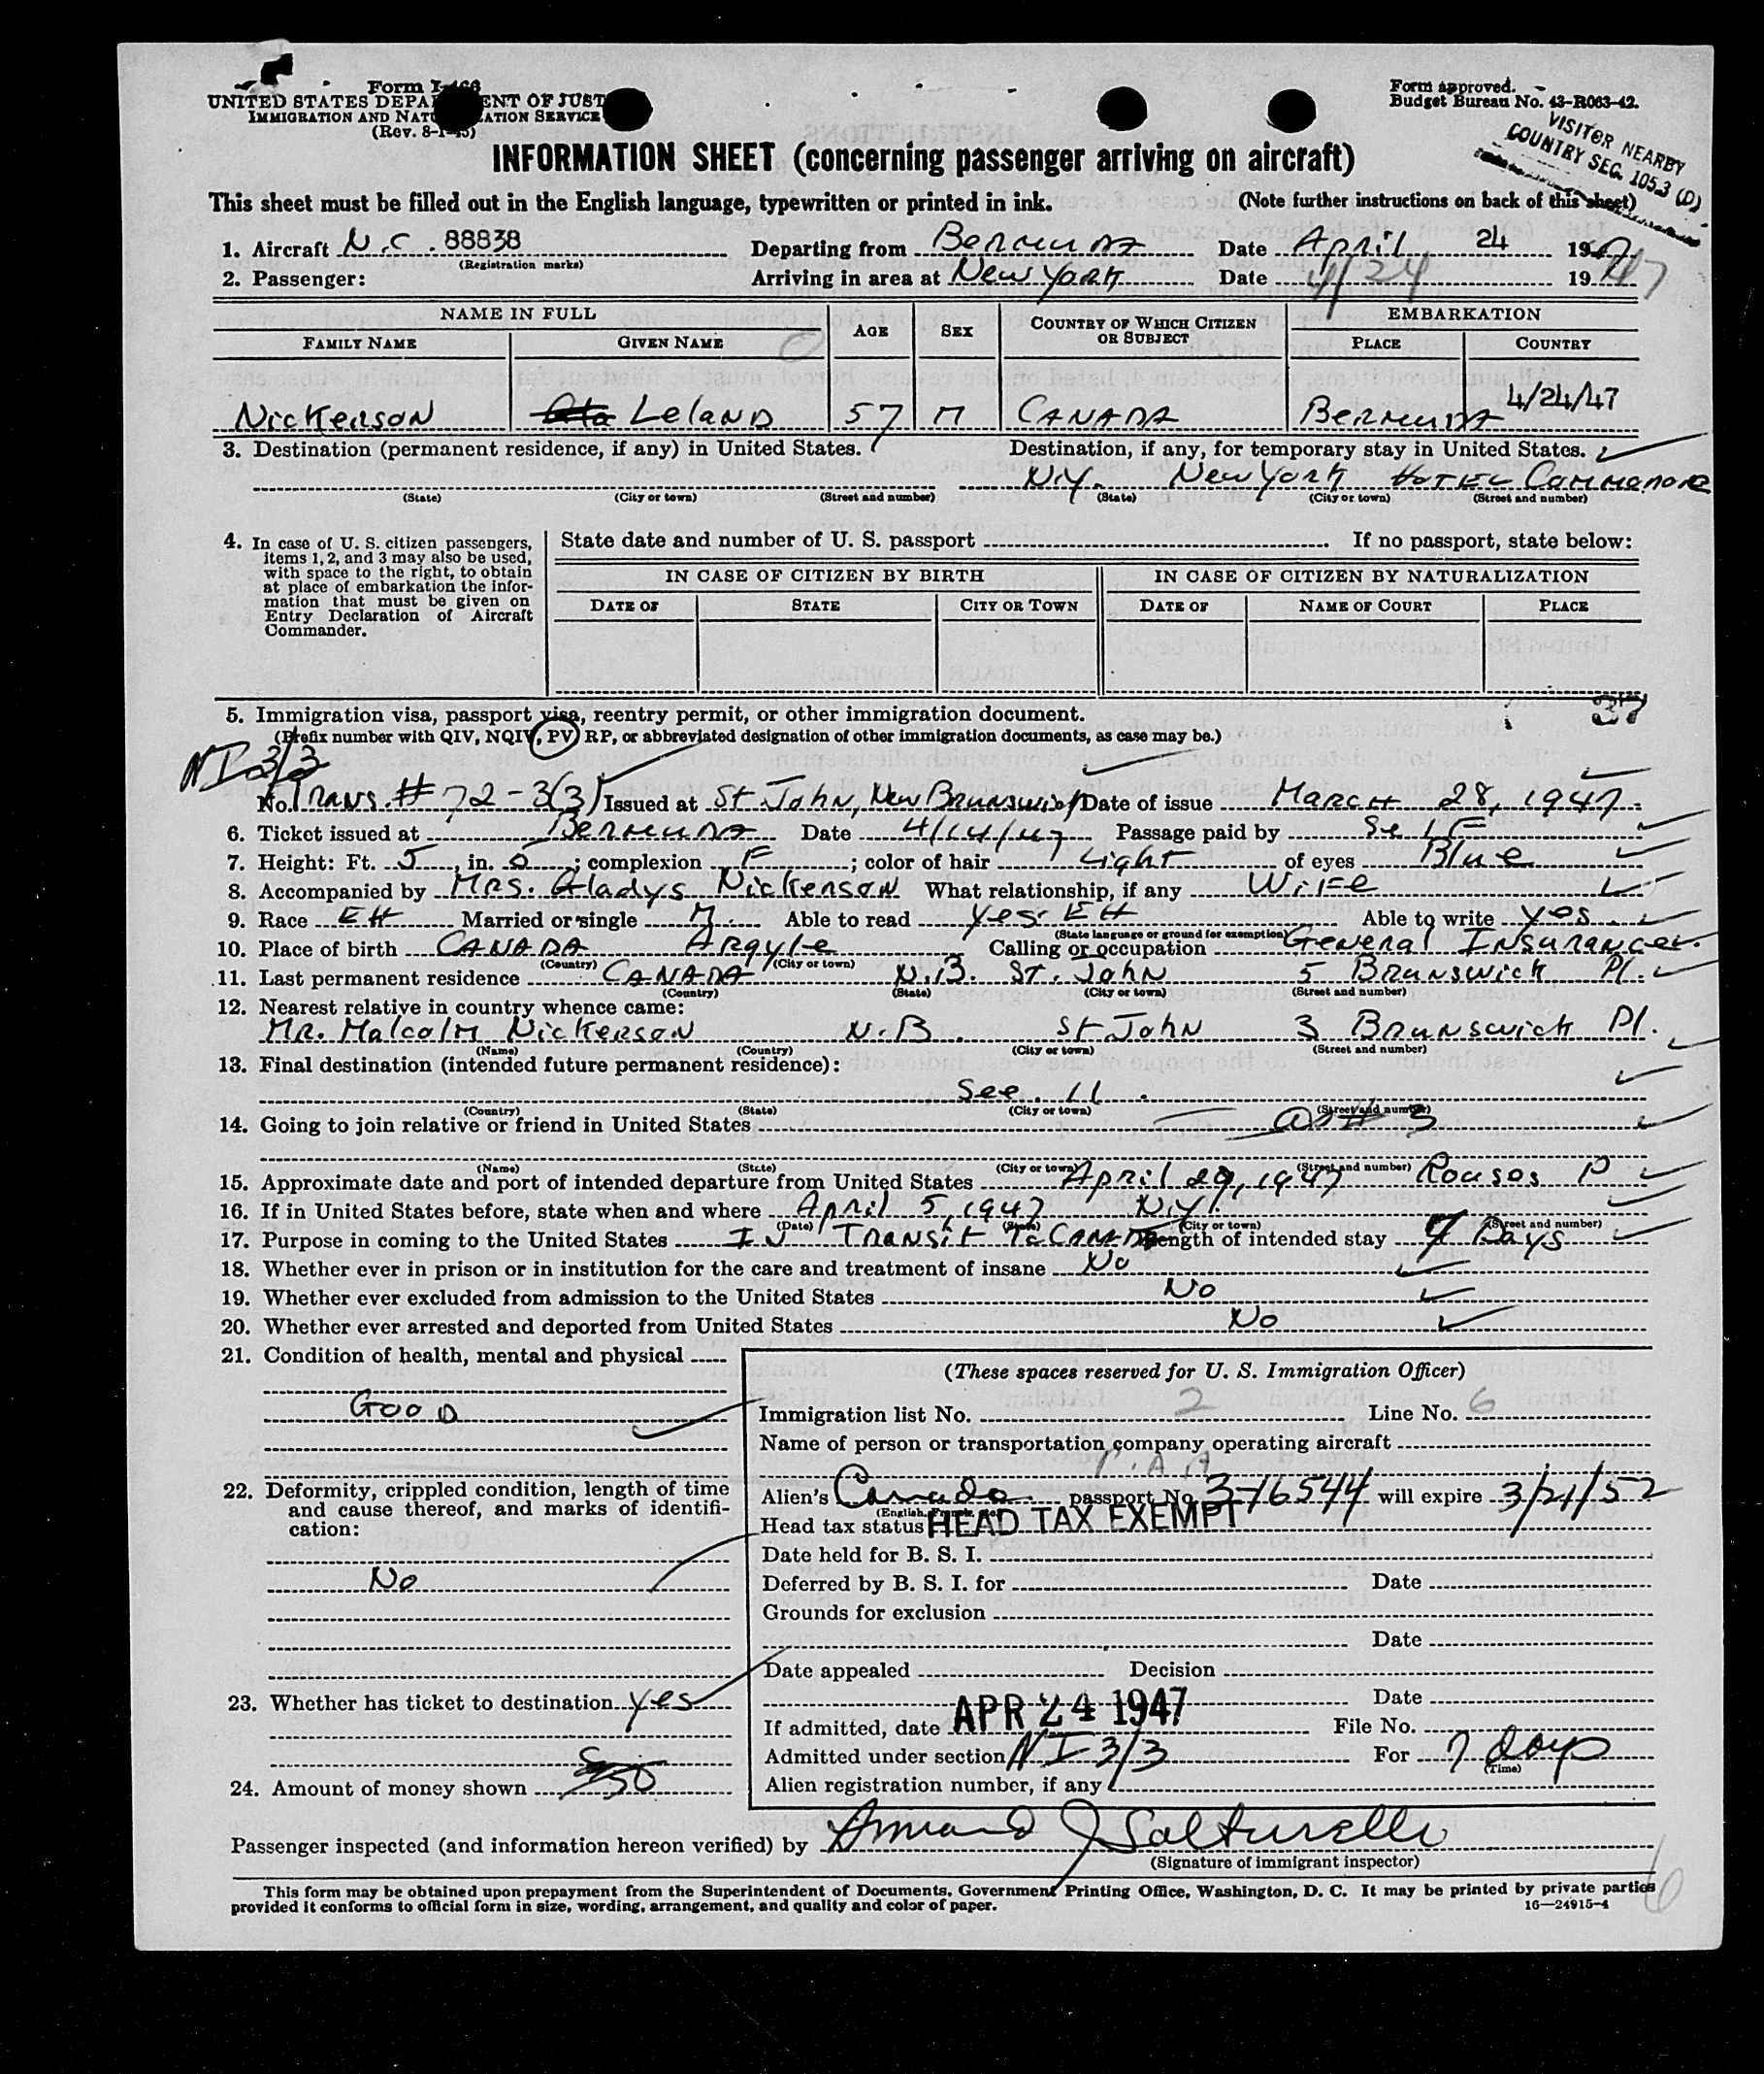 Form I-466
UNITED STATES DEPARTMENT OF JUSTICE
IMMIGRATION AND NATURALIZATION SERVICE
(Rev. 8-1-45)
Form approved.
Budget Bureau No. 43-R063-42.
VISITOR NEARBY
COUNTRY SEC. 105.3 (D)
INFORMATION SHEET (concerning passenger arriving on aircraft)
This sheet must be filled out in the English language, typewritten or printed in ink. (Note further instructions on back of this sheet)
1. Aircraft N.C. 88838 Departing from Bermuda Date April 24 1947
(Registration marks)
2. Passenger: Arriving in area at New York Date 4/24 1947
NAME IN FULL AGE SEX COUNTRY OF WHICH CITIZEN OR SUBJECT EMBARKATION
FAMILY NAME GIVEN NAME PLACE COUNTRY
Nickerson Leland 57 M CANADA Bermuda 4/24/47
3. Destination (permanent residence, if any) in United States. Destination, if any, for temporary stay in United States.
N.Y. New York HOTEL Commodore
(State) (City or town) (Street and number) (State) (City or town) (Street and number)
4. In case of U. S. citizen passengers, items 1, 2, and 3 may also be used, with space to the right, to obtain at place of embarkation the information that must be given on Entry Declaration of Aircraft Commander.
State date and number of U. S. passport If no passport, state below:
IN CASE OF CITIZEN BY BIRTH IN CASE OF CITIZEN BY NATURALIZATION
DATE OF STATE CITY OR TOWN DATE OF NAME OF COURT PLACE
5. Immigration visa, passport visa, reentry permit, or other immigration document.
(Prefix number with QIV, NQIV, PV, RP, or abbreviated designation of other immigration documents, as case may be.)
NI 3/3
No. Trans. # 72-3(3) Issued at St John, New Brunswick Date of issue March 28, 1947
6. Ticket issued at Bermuda Date 4/14/47 Passage paid by Self
7. Height: Ft. 5, in. 5; complexion F; color of hair Light of eyes Blue
8. Accompanied by Mrs. Gladys Nickerson What relationship, if any Wife
9. Race EH Married or single M. Able to read yes. EH Able to write yes
(State language or ground for exemption)
10. Place of birth CANADA Argyle Calling or occupation General Insurance
(Country) (City or town)
11. Last permanent residence CANADA N.B. St. John 5 Brunswick Pl.
(Country) (State) (City or town) (Street and number)
12. Nearest relative in country whence came:
Mr. Malcolm Nickerson N.B. St John 3 Brunswick Pl.
(Name) (Country) (City or town) (Street and number)
13. Final destination (intended future permanent residence):
See. 11.
(Country) (State) (City or town) (Street and number)
14. Going to join relative or friend in United States as # 3
(Name) (State) (City or town) (Street and number)
15. Approximate date and port of intended departure from United States April 29, 1947 Rouses P
16. If in United States before, state when and where April 5, 1947 N.Y.
(Date) (State) (City or town) (Street and number)
17. Purpose in coming to the United States IN Transit To Length of intended stay 7 Days
18. Whether ever in prison or in institution for the care and treatment of insane No
19. Whether ever excluded from admission to the United States No
20. Whether ever arrested and deported from United States No
21. Condition of health, mental and physical
Good
22. Deformity, crippled condition, length of time and cause thereof, and marks of identification:
No
23. Whether has ticket to destination yes
24. Amount of money shown 50
(These spaces reserved for U. S. Immigration Officer)
Immigration list No. 2 Line No. 6
Name of person or transportation company operating aircraft
P.A.A
Alien's Canada passport No. 3-16544 will expire 3/21/52
Head tax status HEAD TAX EXEMPT
Date held for B. S. I.
Deferred by B. S. I. for Date
Grounds for exclusion
Date
Date appealed Decision
Date
If admitted, date APR 24 1947 File No.
Admitted under section NI 3/3 For 7 days
(Time)
Alien registration number, if any
Passenger inspected (and information hereon verified) by
(Signature of immigrant inspector)
This form may be obtained upon prepayment from the Superintendent of Documents, Government Printing Office, Washington, D. C. It may be printed by private parties
provided it conforms to official form in size, wording, arrangement, and quality and color of paper. 16—24915-4
6